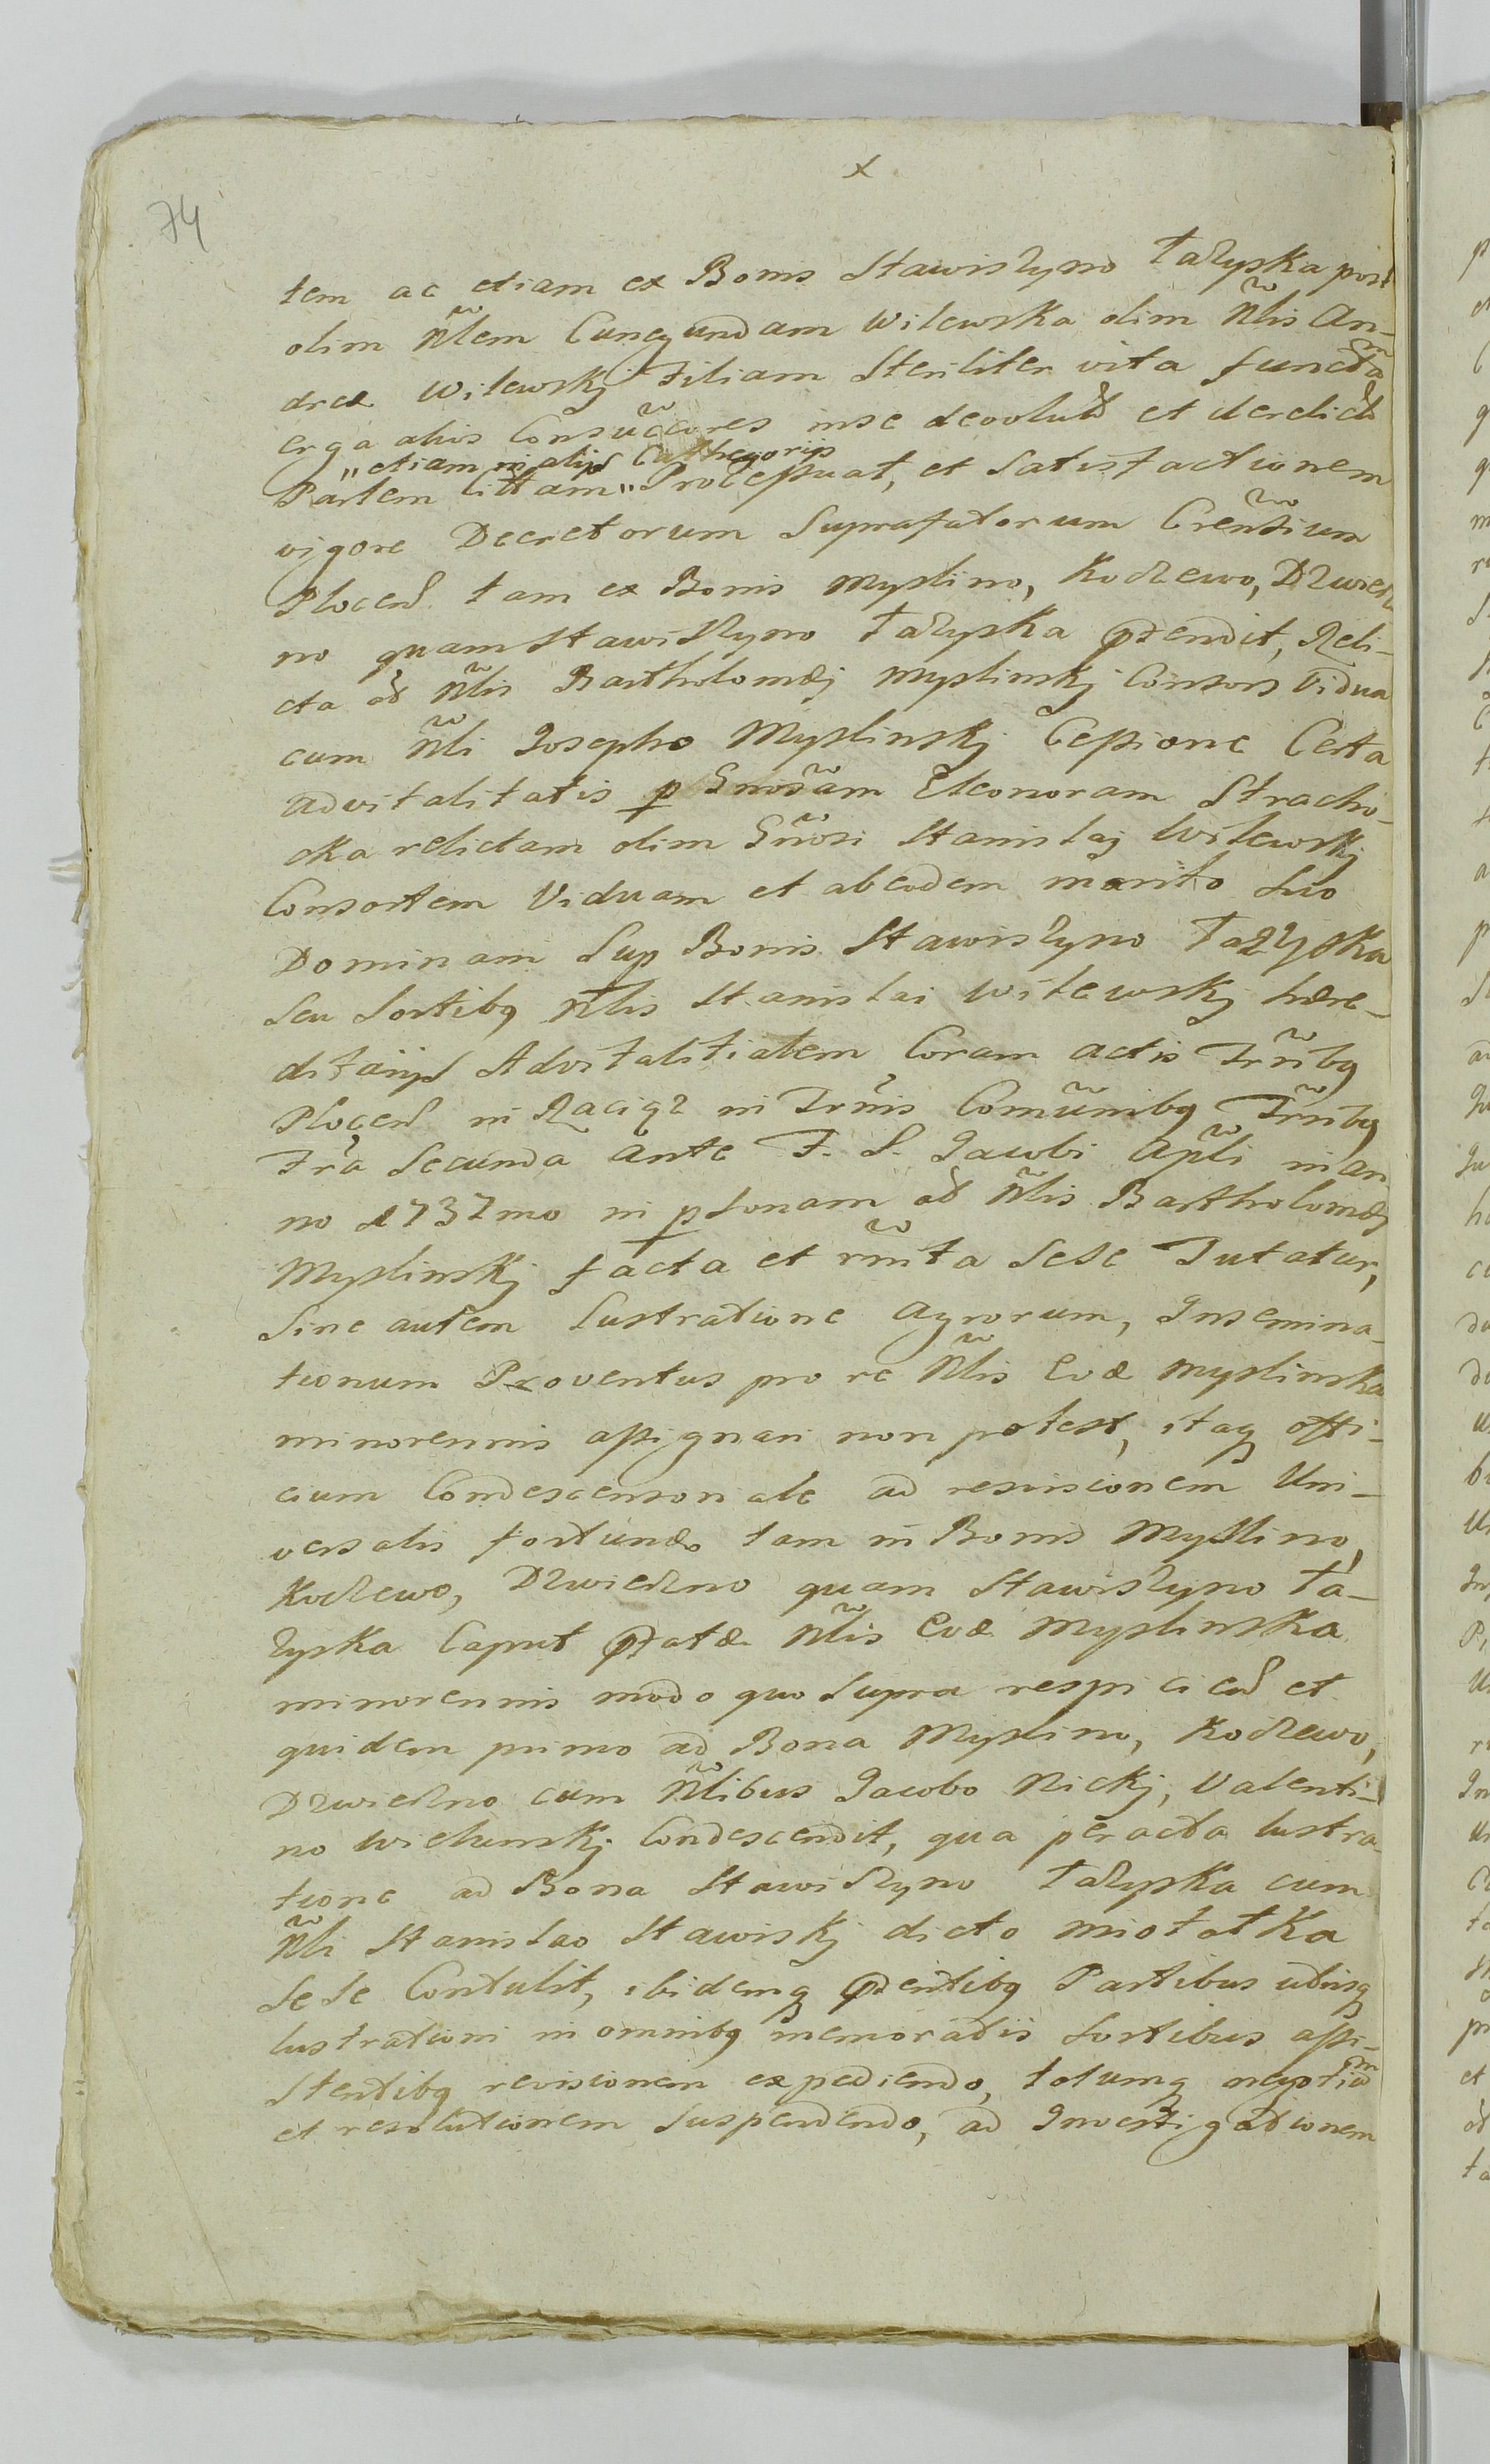 x
74
tem ac etiam ex Bonis Stawiszyno Łazyska post
olim Nlem Cunegundam Wilewska olim Nlis An-
dreæ Wilewskj Filiam Steriliter vita functam
erga alios Consuccores inse devolut et derelict
"etiam in alijs Cathegorijs
Partem littam" Procepuat, et Satisfactionem
vigore Decretorum Suprafatorum Crensium
Plocen tam ex Bonis Myslino, Kodzewo, Dzwierz
no quam Stawiszyno Łazyska prendit, Reli-
cta ad Nlis Bartholomæj Myslinskj Consors Vidua
cum Nli Josepho Myslinskj Cessione Certa
advitalitatis p Gnosam Eleonoram Stracho-
cka relictam olim Gnosi Stanislaj Wilewskj
Consortem Viduam et ab eodem marito Suo
Dominam Sup Bonis Stawiszyno Łazyska
seu Sortibq Nlis Stanislai Wilewskj hære-
ditarijs Advitalitialem, Coram actis Trribq
Plocen in Raciąz in Trmis Comunibq Trribq
Fra Secunda ante F. S. Jacobi Apli in an
no 1737mo in psonam ad Nlis Bartholomæj
Myslinskj facta et rnita Sese Tutatur,
Sine autem lustratione agrorum, Insemina-
tionum Proventus pro re Nlis Evæ Myslinska
minorennis assignari non potest, itaq offi-
cium Condescensoriale ad revisionem Uni-
versalis fortunæ tam in Bonis Myslino,
Kodzewo, Dzwierzno quam Stawiszyno Ła-
zyska Caput pfatæ Nlis Evæ Myslinska
minorennis modo quo Supra respicien et
quidem primo ad Bona Myslino, Kodzewo,
Dzwierzno cum Nlibus Jacobo Nickj, Valenti-
no Wichinskj Condescendit, qua peracta lustra-
tione ad Bona Stawiszyno Łazyska cum
Nli Stanislao Stawiskj dicto Miotołka
Sese Contulit, ibidemq prentibq Partibus utrisq
lustrationi in omnibq memoratis Sortibus assi-
stentibq revisionem expediendo, totumq negotium
et resolutionem Suspendendo, ad Investigationem